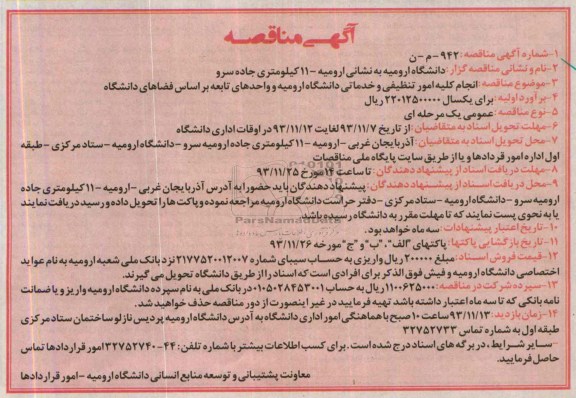 آگهی مناقصه
۱-شماره آگهی مناقصه: ۹۴۲-م-ن
۲-نام و نشانی مناقصه گزار: دانشگاه ارومیه به نشانی ارومیه -۱۱ کیلومتری جاده سرو
۳-موضوع مناقصه: انجام کلیه امور تنظیفی و خدماتی دانشگاه ارومیه و واحدهای تابعه بر اساس فضاهای دانشگاه
۴-برآورد اولیه: برای یکسال ۲۲۰۱۲۵۰۰۰۰۰ ریال
۵-نوع مناقصه: عمومی یک مرحله ای
۶-مهلت تحویل اسناد به متقاضیان: از تاریخ ۹۳/۱۱/۷ لغایت ۹۳/۱۱/۱۲ در اوقات اداری دانشگاه
۷-محل تحویل اسناد به متقاضیان: آذربایجان غربی -ارومیه -۱۱ کیلومتری جاده ارومیه سرو -دانشگاه ارومیه -ستاد مرکزی -طبقه
اول اداره امور قردادها و یا از طریق سایت پایگاه ملی مناقصات
۸-مهلت دریافت اسناد از پیشنهاد دهندگان: تا ساعت ۱۴ مورخ ۹۳/۱۱/۲۵
۹-محل دریافت اسناد از پیشنهاد دهندگان: پیشنهاد دهندگان باید حضورا به آدرس آذربایجان غربی -ارومیه -۱۱ کیلومتری جاده
ارومیه سرو -دانشگاه ارومیه -ستاد مرکزی -دفتر حراست دانشگاه ارومیه مراجعه نموده و پاکت ها را تحویل داده و رسید دریافت نمایند
یا به نحوی پست نمایند که تا مهلت مقرر به دانشگاه رسیده باشد.
۱۰-تاریخ اعتبار پیشنهادات: سه ماه خواهد بود.
۱۱-تاریخ بازگشایی پاکتها: پاکتهای "الف"، "ب" و "ج" مورخه ۹۳/۱۱/۲۶
۱۲-قیمت فروش اسناد: مبلغ ۲۰۰۰۰۰ ریال واریزی به حساب سیبای شماره ۲۱۷۷۵۲۰۰۱۲۰۰۷ نزد بانک ملی شعبه ارومیه به نام عواید
اختصاصی دانشگاه ارومیه و فیش فوق الذکر برای افرادی است که اسناد را از طریق دانشگاه تحویل می گیرند.
۱۳-سپرده شرکت در مناقصه: ۱۱۰۰۶۲۵۰۰۰ ریال به حساب ۰۱۰۵۰۲۸۴۵۳۰۰۱ در بانک ملی به نام سپرده دانشگاه ارومیه واریز و یا ضمانت
نامه بانکی که تا سه ماه اعتبار داشته باشد تهیه فرمایید در غیر اینصورت از دور مناقصه حذف خواهید شد.
۱۴-زمان بازدید: ۹۳/۱۱/۱۳ ساعت ۱۰ صبح با هماهنگی امور اداری دانشگاه به آدرس دانشگاه ارومیه پردیس نازلو ساختمان ستاد مرکزی
طبقه اول به شماره تماس ۳۲۷۵۲۷۳۳
-سایر شرایط، در برگه های اسناد درج شده است. برای کسب اطلاعات بیشتر با شماره تلفن: ۴۴-۳۲۷۵۲۷۴۰ امور قراردادها تماس
حاصل فرمایید.
معاونت پشتیبانی و توسعه منابع انسانی دانشگاه ارومیه -امور قراردادها